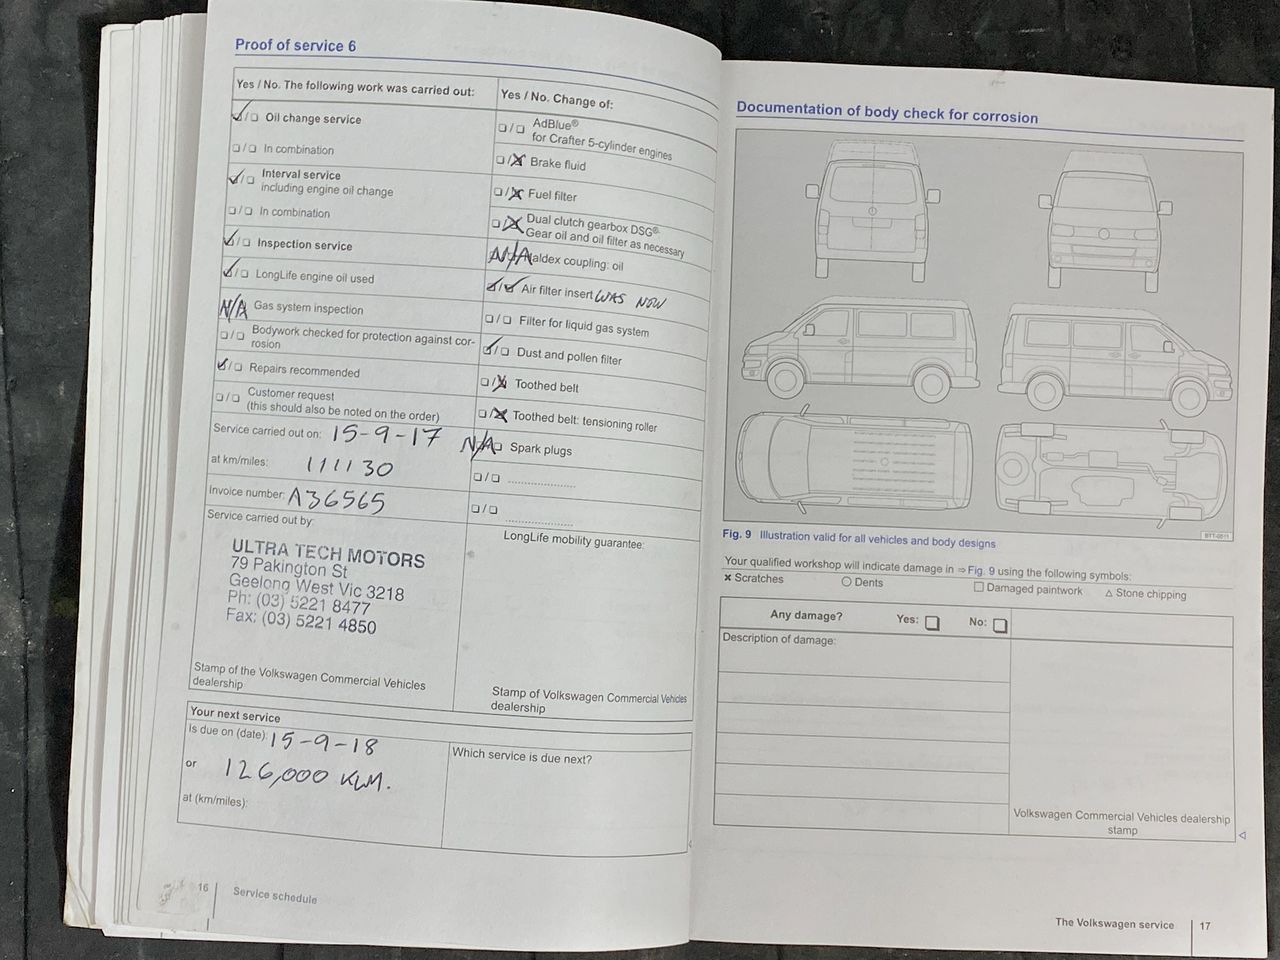 Proof of service 6
Yes / No. The following work was carried out:
☑/☐ Oil change service
☐/☐ In combination
☑/☐ Interval service
including engine oil change
☐/☐ In combination
☑/☐ Inspection service
☑/☐ LongLife engine oil used
N/A Gas system inspection
☐/☐ Bodywork checked for protection against cor-
rosion
☑/☐ Repairs recommended
☐/☐ Customer request
(this should also be noted on the order)
Service carried out on: 15-9-17
at km/miles: 111130
Invoice number: A36565
Service carried out by:
ULTRA TECH MOTORS
79 Pakington St
Geelong West Vic 3218
Ph: (03) 5221 8477
Fax: (03) 5221 4850
Stamp of the Volkswagen Commercial Vehicles
dealership
Yes / No. Change of:
☐/☐ AdBlue®
for Crafter 5-cylinder engines
☐/☒ Brake fluid
☐/☒ Fuel filter
☐/☒ Dual clutch gearbox DSG®:
Gear oil and oil filter as necessary
N/A Haldex coupling: oil
☑/☑ Air filter insert WAS NEW
☐/☐ Filter for liquid gas system
☑/☐ Dust and pollen filter
☐/☒ Toothed belt
☐/☒ Toothed belt: tensioning roller
N/A Spark plugs
☐/☐ ......................
☐/☐ ......................
LongLife mobility guarantee:
Stamp of Volkswagen Commercial Vehicles
dealership
Your next service
Is due on (date): 15-9-18
or 126,000 KLM.
at (km/miles):
Which service is due next?
16 | Service schedule
Documentation of body check for corrosion
Fig. 9 Illustration valid for all vehicles and body designs
Your qualified workshop will indicate damage in ⇒ Fig. 9 using the following symbols:
× Scratches ○ Dents □ Damaged paintwork △ Stone chipping
Any damage? Yes: ☐ No: ☐
Description of damage:
Volkswagen Commercial Vehicles dealership
stamp
The Volkswagen service | 17